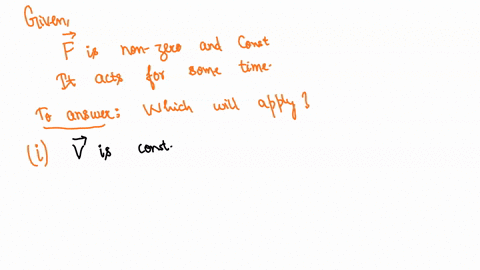 Given,
F is non-zero and Const
It acts for some time.
To answer: Which will apply?
(i) V is const.